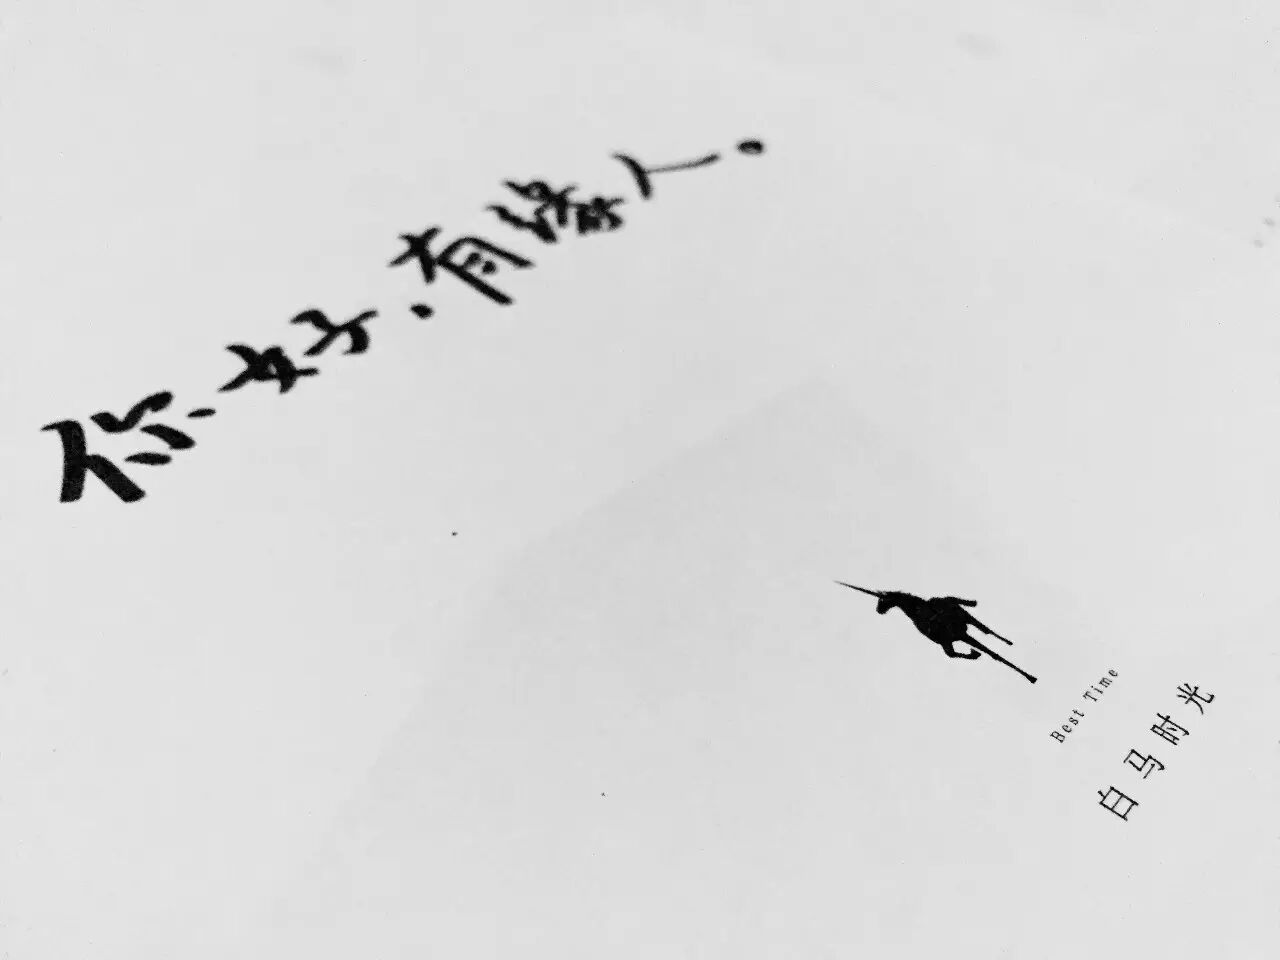 你好,有缘人。
Best Time
白马时光